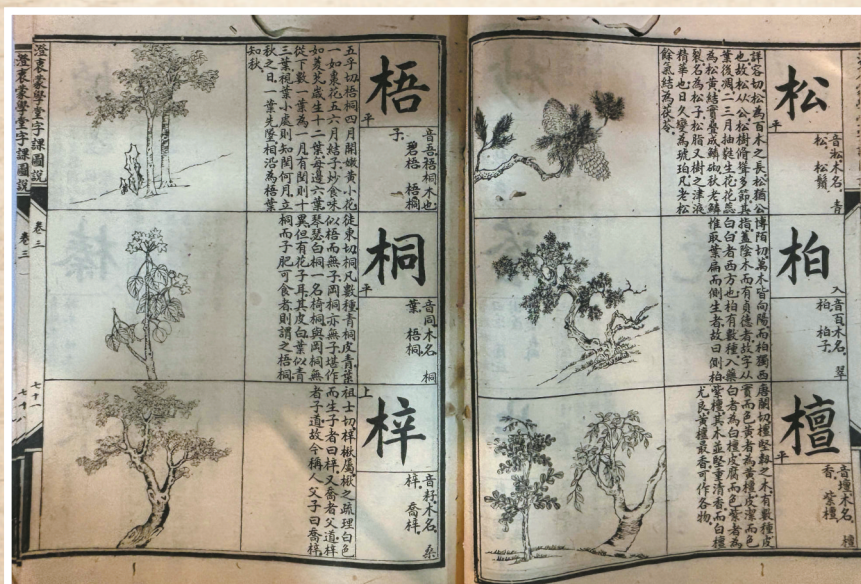 松
平
音淞木名 青
松 松鬚
詳容切松為百木之長松猶公
也故松从公松樹脩聳多節其
葉後凋二三月抽蕤生花花蕊
為松黃結實疊成鱗砌秋老鱗
裂名為松子松脂又樹之津液
精華也日久變為琥珀凡老松
餘氣結為茯苓
柏
入
音百木名 翠
柏 柏子
博陌切萬木皆向陽而柏獨西
指蓋陰木而有貞德者故字从
白白者西方也柏有數種入藥
惟取葉扁而側生者故曰側柏
檀
平
音壇木名 檀
香 紫檀
唐闌切檀堅韌之木有數種皮
實而色黃者為黃檀皮潔而色
白者為白檀皮腐而色紫者為
紫檀其木並堅重清香而白檀
尤良黃檀最香可作各物
梧
平
音吾梧桐木也
碧梧 梧桐
子
五乎切梧桐四月開嫩黃小花
一如棗花五六月結子炒食味
如菱芡歲生十二葉每邊六葉
從下數一葉為一月有閏則十
三葉視葉小處則知閏何月立
秋之日一葉先墜相沿為梧葉
知秋
桐
平
音同木名 桐
葉 梧桐
徒東切桐凡數種青桐皮青葉
似梧而無子岡桐亦無子堪作
琴瑟白桐一名椅桐與岡桐無
異但有花子耳其皮白葉似青
桐而子肥可食者則謂之梧桐
梓
上
音籽木名 桑
梓 喬梓
祖士切梓楸屬楸之疏理白色
而生子者曰梓又喬者父道梓
者子道故今稱人父子曰喬梓
澄衷蒙學堂字課圖說 卷三 七十一
澄衷蒙學堂字課圖說 卷三